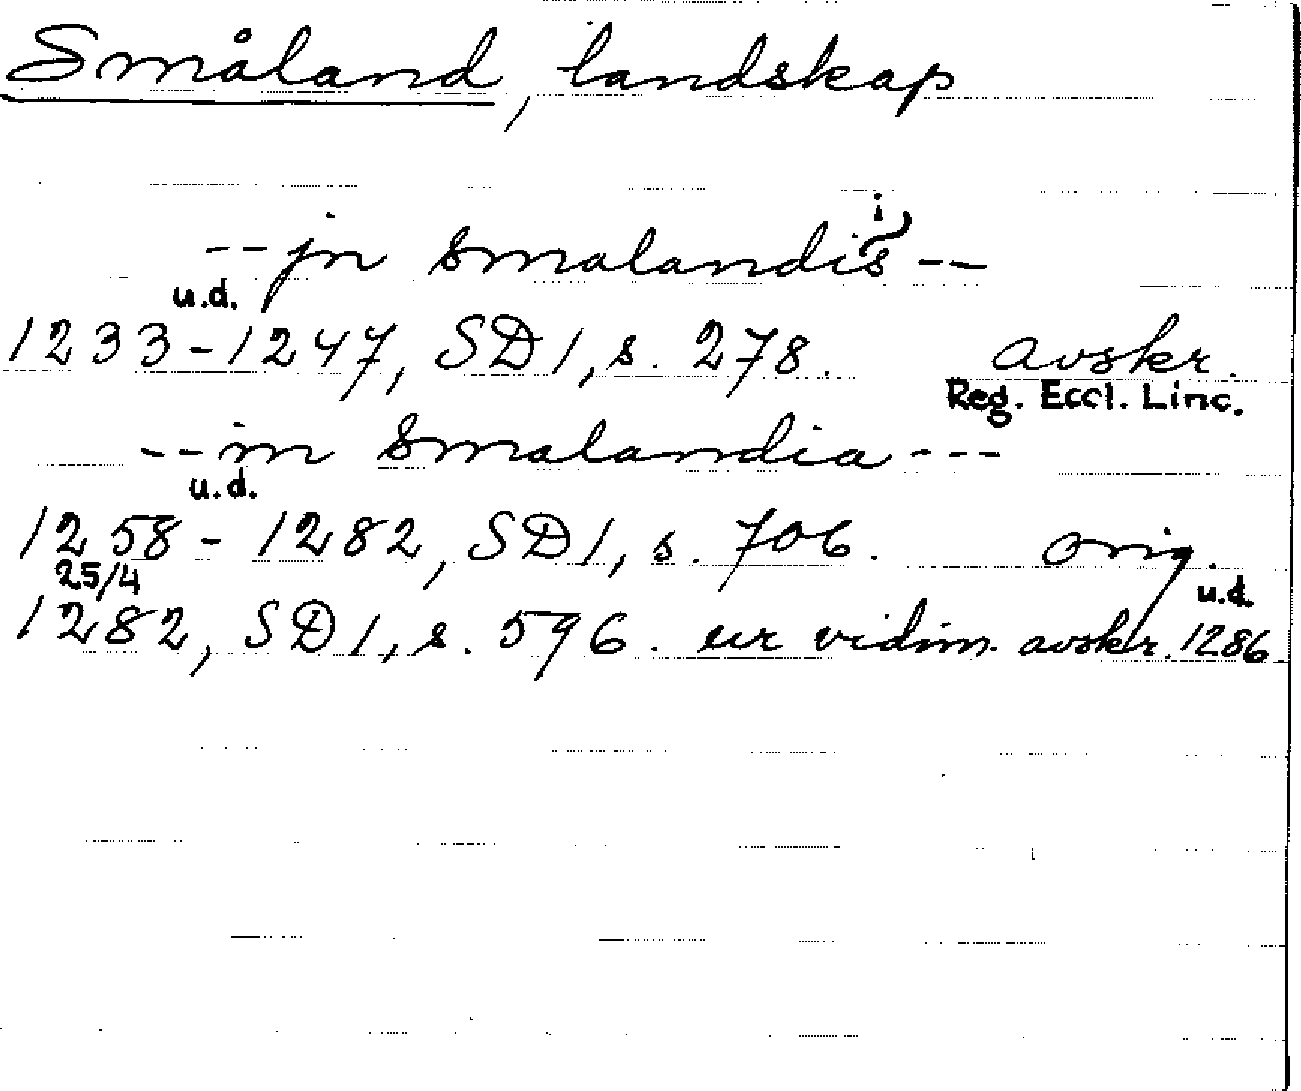 Småland, landskap
i
--jn Smalandis--
u.d.
1233-1247, SD1, s. 278. avskr.
Reg. Eccl. Linc.
--in Smalandia---
u.d.
1258-1282, SD1, s. 706. orig.
25/4 u.d.
1282, SD1, s. 596. ur vidim. avskr. 1286